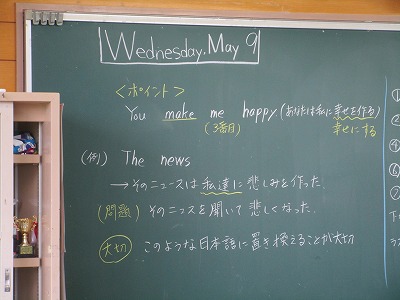 Wednesday, May 9
＜ポイント＞
You make me happy (あなたは私に幸せを作る)
(3番目) 幸せにする
(例) The news
→そのニュースは私達に悲しみを作った.
(問題) そのニュースを聞いて悲しくなった.
大切 このような日本語に置き換えることが大切
①
②